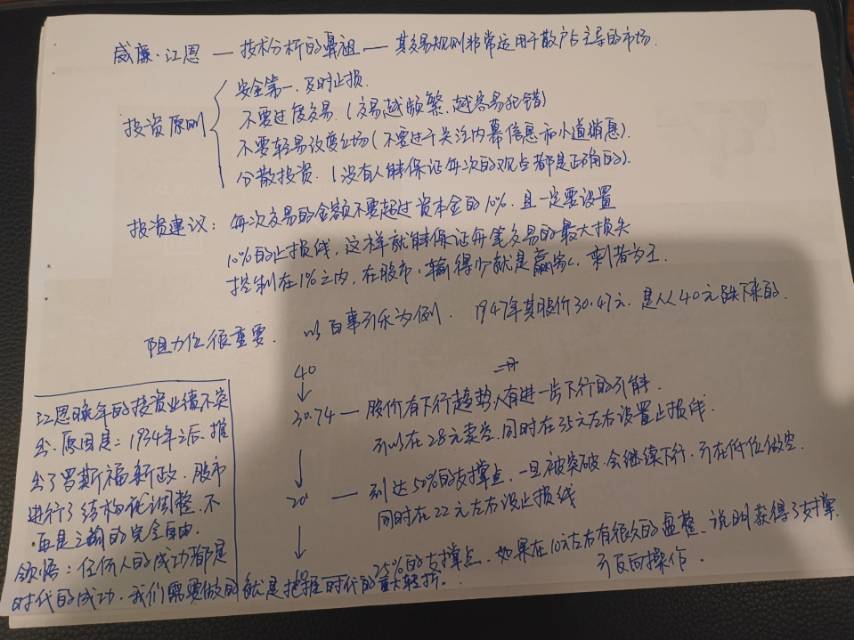 威廉·江恩 — 技术分析的鼻祖 — 其交易规则非常适用于散户占主导的市场.
投资原则
安全第一.及时止损.
不要过度交易.(交易越频繁、越容易犯错)
不要轻易改变立场(不要过于关注内幕信息和小道消息).
分散投资.(没有人能保证每次的观点都是正确的).
投资建议:每次交易的金额不要超过资本金的10%.且一定要设置
10%的止损线,这样就能保证每笔交易的最大损失
控制在1%之内,在股市,输得少就是赢家,剩者为王.
阻力位很重要. 以百事可乐为例. 1947年其股价30.47元.是从40元跌下来的.
40
30.74 — 股价有下行趋势,有进一步下行的可能.
可以在28元卖空.同时在35元左右设置止损线.
20 — 到达50%的支撑点,一旦被突破.会继续下行,可在低位做空.
同时在22元左右设止损线
10 25%的支撑点.如果在10元左右有很久的盘整、说明获得了支撑.
可反向操作.
江恩晚年的投资业绩不突
出.原因是:1934年之后.推
出了罗斯福新政.股市
进行了结构性调整.不
再是之前的完全自由.
领悟:任何人的成功都是
时代的成功.我们需要做的就是把握时代的重大转折.